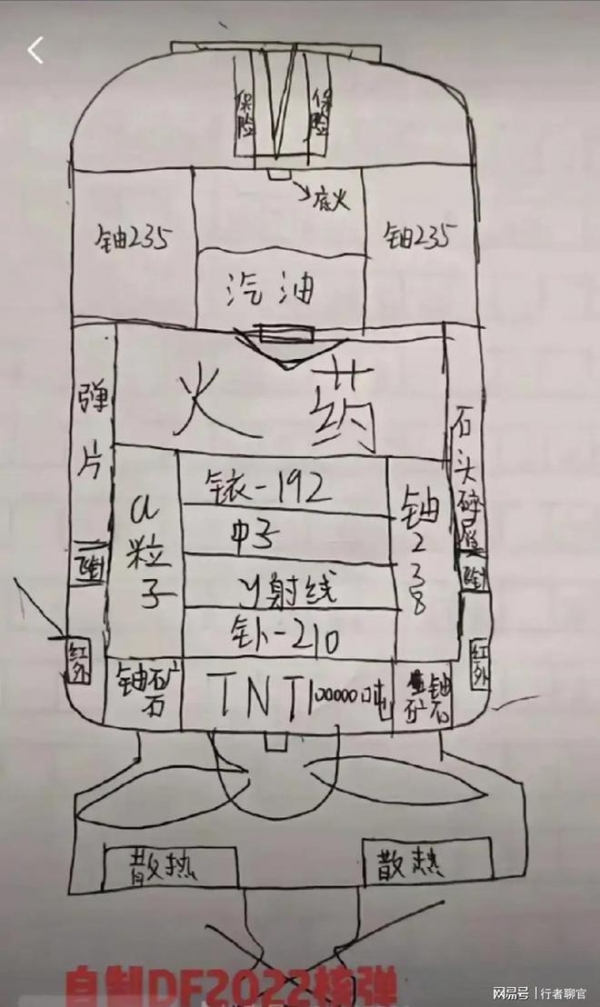 保险 保险
底火
铀235 铀235
汽油
火药
弹片
石头碎屑
铱-192
中子
γ射线
钋-210
α粒子
铀238
红外 红外
铀矿石
TNT1000000吨
散热 散热
自制DF2022核弹
网易号 | 行者聊官